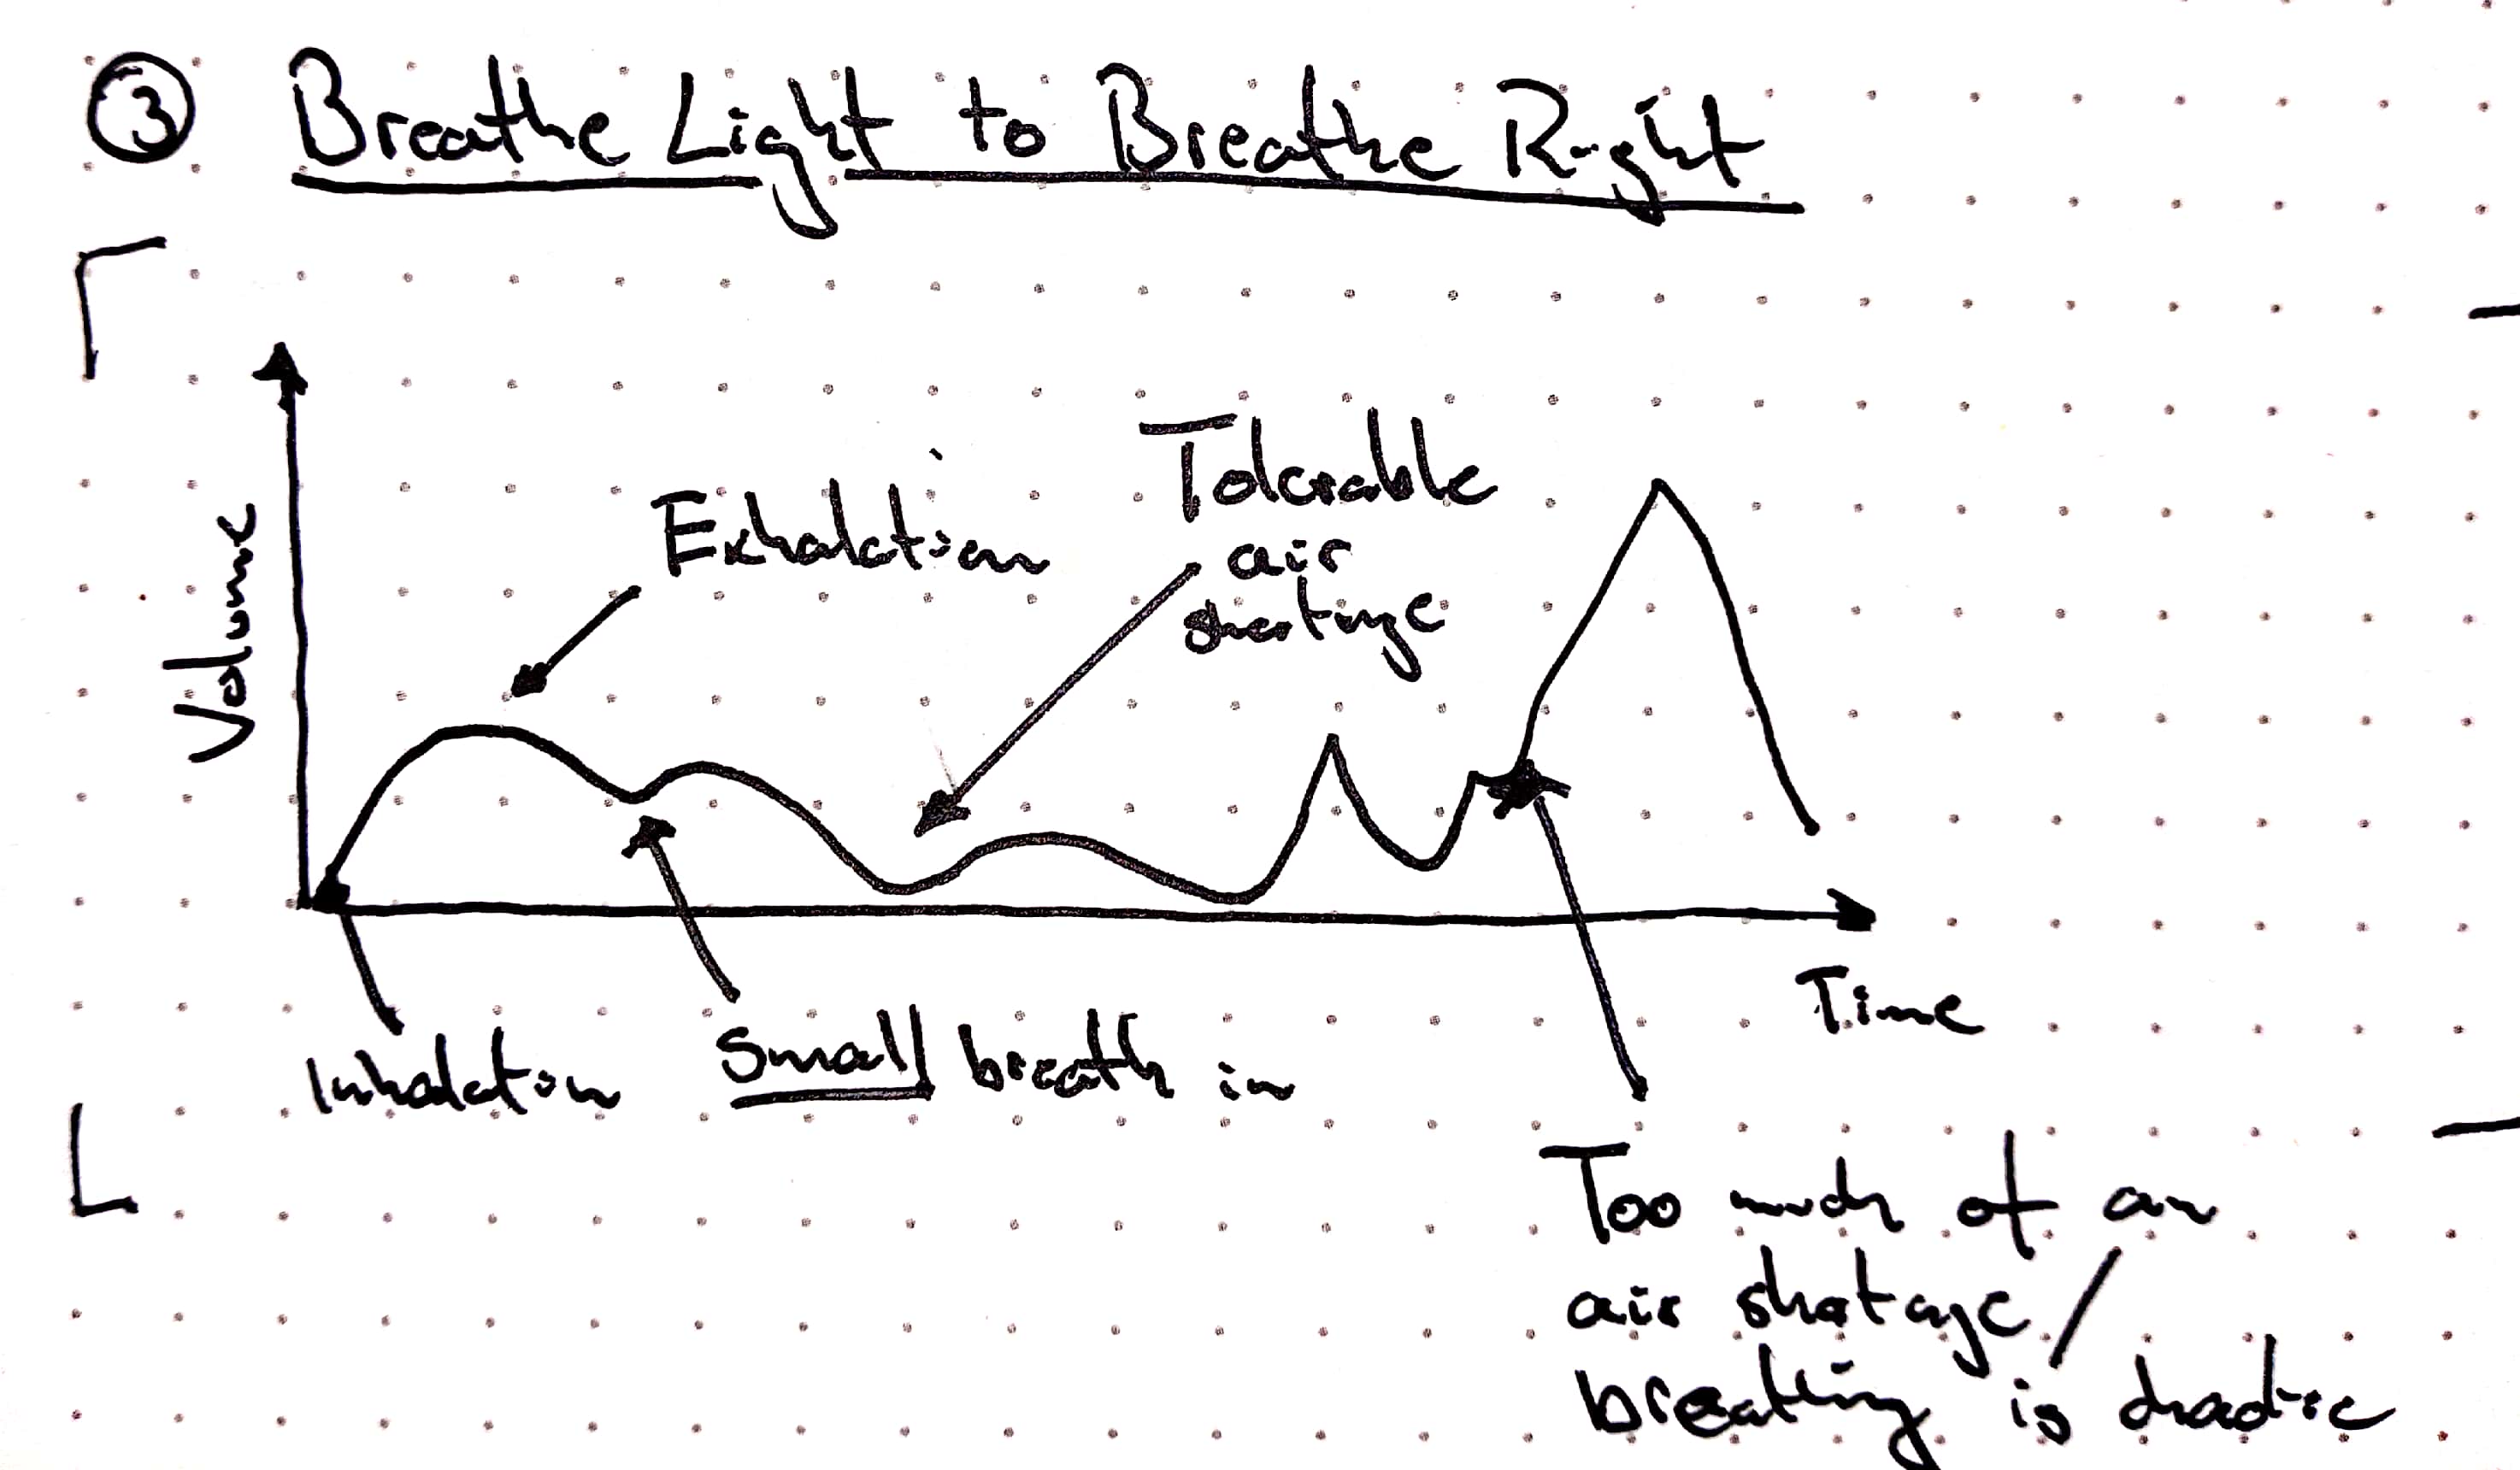 3 Breathe Light to Breathe Right
Volume
Exhalation
Tolerable
air
shortage
Time
Inhalation
Small breath in
Too much of an
air shortage/
breathing is chaotic